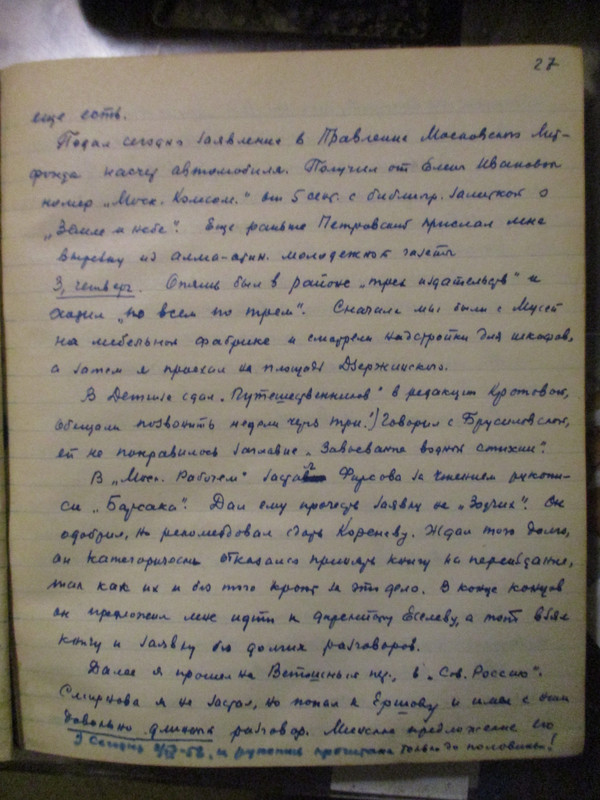 27
еще есть.
Подал сегодня заявление в Правление Московского Лит-
фонда насчет автомобиля. Получил от Елены Ивановны
номер „Моск. Комсом." от 5 сент. с библиогр. заметкой о
„Земле и небе". Еще раньше Петровский прислал мне
вырезку из алма-атин. молодежной газеты
3, четверг. Опять был в районе „трех издательств" и
ходил „по всем по трем". Сначала мы были с Мусей
на мебельной фабрике и смотрели надстройки для шкафов,
а затем я проехал на площадь Дзержинского.
В Детгизе сдал „Путешественников" в редакцию Кротовой,
обещали позвонить недели через три.¹) Говорил с Брусиловской,
ей не понравилось заглавие „Завоевание водной стихии".
В „Моск. Рабочем" застал Фирсова за чтением рукопи-
си „Барсака". Дал ему прочесть заявку на „Зодчих". Он
одобрил, но рекомендовал сдать Кореневу. Ждал того долго,
он категорически отказался принять книгу на переиздание,
мол как их и без того кроют за это дело. В конце концов
он предложил мне идти к директору Еселеву, а тот взял
книгу и заявку без долгих разговоров.
Далее я прошел на Ветошный пер., в „Сов. Россию".
Смирнова я не застал, но попал к Ершову и имел с ним
довольно длинный разговор. Мнение предложение его
и рукопись прочитана только до половины!